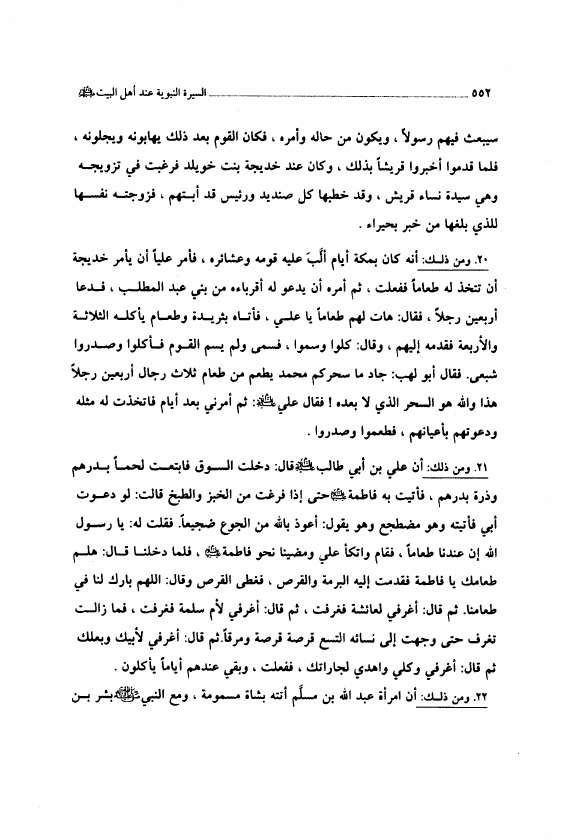 ٥٥٢ السيرة النبوية عند أهل البيت
سيبعث فيهم رسولاً ، ويكون من حاله وأمره ، فكان القوم بعد ذلك يهابونه ويجلونه ،
فلما قدموا أخبروا قريشاً بذلك ، وكان عند خديجة بنت خويلد فرغبت في تزويجه
وهي سيدة نساء قريش ، وقد خطبها كل صنديد ورئيس قد أبتهم ، فزوجته نفسها
للذي بلغها من خبر بحيراء .
٢٠. ومن ذلك: أنه كان بمكة أيام ألَّبَ عليه قومه وعشائره ، فأمر علياً أن يأمر خديجة
أن تتخذ له طعاماً ففعلت ، ثم أمره أن يدعو له أقرباءه من بني عبد المطلب ، فدعا
أربعين رجلاً ، فقال: هات لهم طعاماً يا علي ، فأتاه بثريدة وطعام يأكله الثلاثة
والأربعة فقدمه إليهم ، وقال: كلوا وسموا ، فسمى ولم يسم القوم فأكلوا وصدروا
شبعى. فقال أبو لهب: جاد ما سحركم محمد يطعم من طعام ثلاث رجال أربعين رجلاً
هذا والله هو السحر الذي لا بعده ! فقال علي: ثم أمرني بعد أيام فاتخذت له مثله
ودعوتهم بأعيانهم ، فطعموا وصدروا .
٢١. ومن ذلك: أن علي بن أبي طالب قال: دخلت السوق فابتعت لحماً بدرهم
وذرة بدرهم ، فأتيت به فاطمة حتى إذا فرغت من الخبز والطبخ قالت: لو دعوت
أبي فأتيته وهو مضطجع وهو يقول: أعوذ بالله من الجوع ضجيعاً. فقلت له: يا رسول
الله إن عندنا طعاماً ، فقام واتكأ علي ومضينا نحو فاطمة ، فلما دخلنا قال: هلم
طعامك يا فاطمة فقدمت إليه البرمة والقرص ، فغطى القرص وقال: اللهم بارك لنا في
طعامنا. ثم قال: أغرفي لعائشة فغرفت ، ثم قال: أغرفي لأم سلمة فغرفت ، فما زالت
تغرف حتى وجهت إلى نسائه التسع قرصة قرصة ومرقاً.ثم قال: أغرفي لأبيك وبعلك
ثم قال: أغرفي وكلي واهدي لجاراتك ، ففعلت ، وبقي عندهم أياماً يأكلون .
٢٢. ومن ذلك: أن امرأة عبد الله بن مسلَّم أتته بشاة مسمومة ، ومع النبي بشر بن